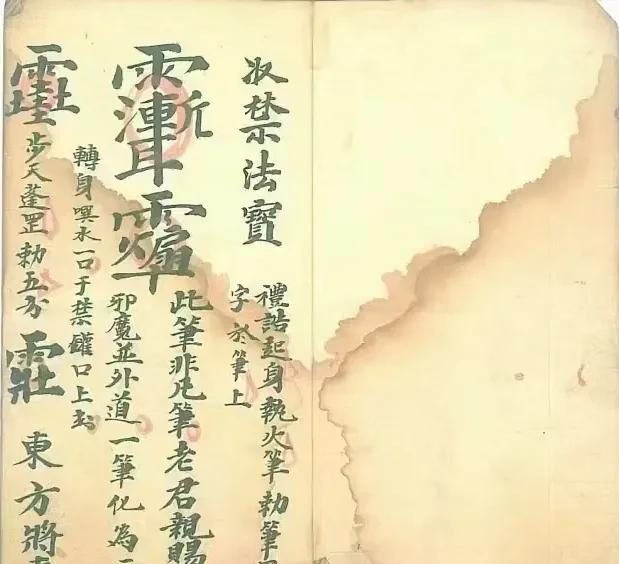 収禁法寶
禮誥起身執火筆勅筆
字於筆上
此筆非凡筆老君親賜
邪魔並外道一筆化為
轉身噀水一口于禁罐口上書
步天蓬罡勅五方
東方將